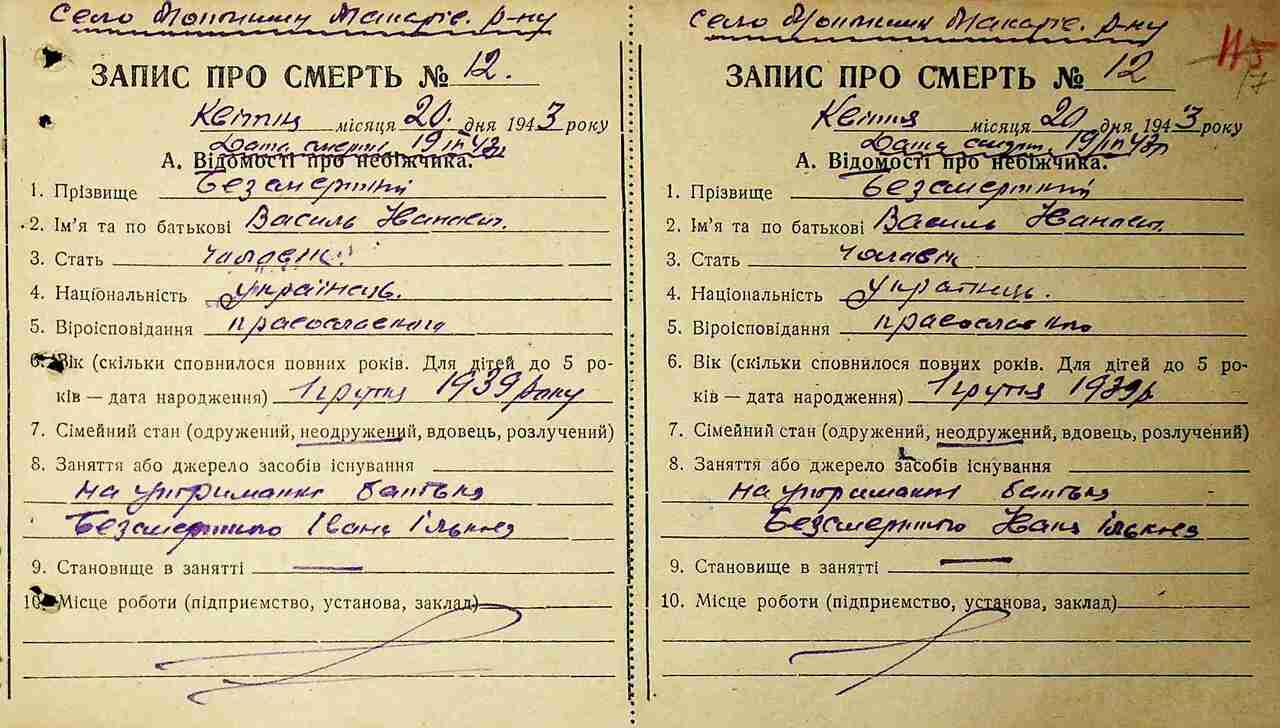 Село Мотижин Макарів. р-ну
ЗАПИС ПРО СМЕРТЬ № 12.
Квітня місяця 20. дня 1943 року
Дата смерті 19/IV 43р
А. Відомості про небіжчика.
1. Прізвище Безсмертний
2. Ім'я та по батькові Василь Іванович.
3. Стать чоловік.
4. Національність українець.
5. Віроісповідання православного
6. Вік (скільки сповнилося повних років. Для дітей до 5 ро-
ків — дата народження) 1 грудня 1939 року
7. Сімейний стан (одружений, неодружений, вдовець, розлучений)
8. Заняття або джерело засобів існування
на утриманні батька
Безсмертного Івана Ількова
9. Становище в занятті —
10. Місце роботи (підприємство, установа, заклад)
Село Мотижин Макарів. р-ну
ЗАПИС ПРО СМЕРТЬ № 12
Квітня місяця 20 дня 1943 року
Дата смерт. 19/IV 43р
А. Відомості про небіжчика.
1. Прізвище Безсмертний
2. Ім'я та по батькові Василь Іванович.
3. Стать чоловік
4. Національність українець.
5. Віроісповідання православного
6. Вік (скільки сповнилося повних років. Для дітей до 5 ро-
ків — дата народження) 1 грудня 1939р
7. Сімейний стан (одружений, неодружений, вдовець, розлучений)
8. Заняття або джерело засобів існування
на утриманні батька
Безсмертного Івана Ількова
9. Становище в занятті —
10. Місце роботи (підприємство, установа, заклад)